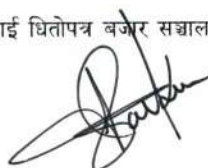 ाई धितोपत्र बजार सञ्चाल